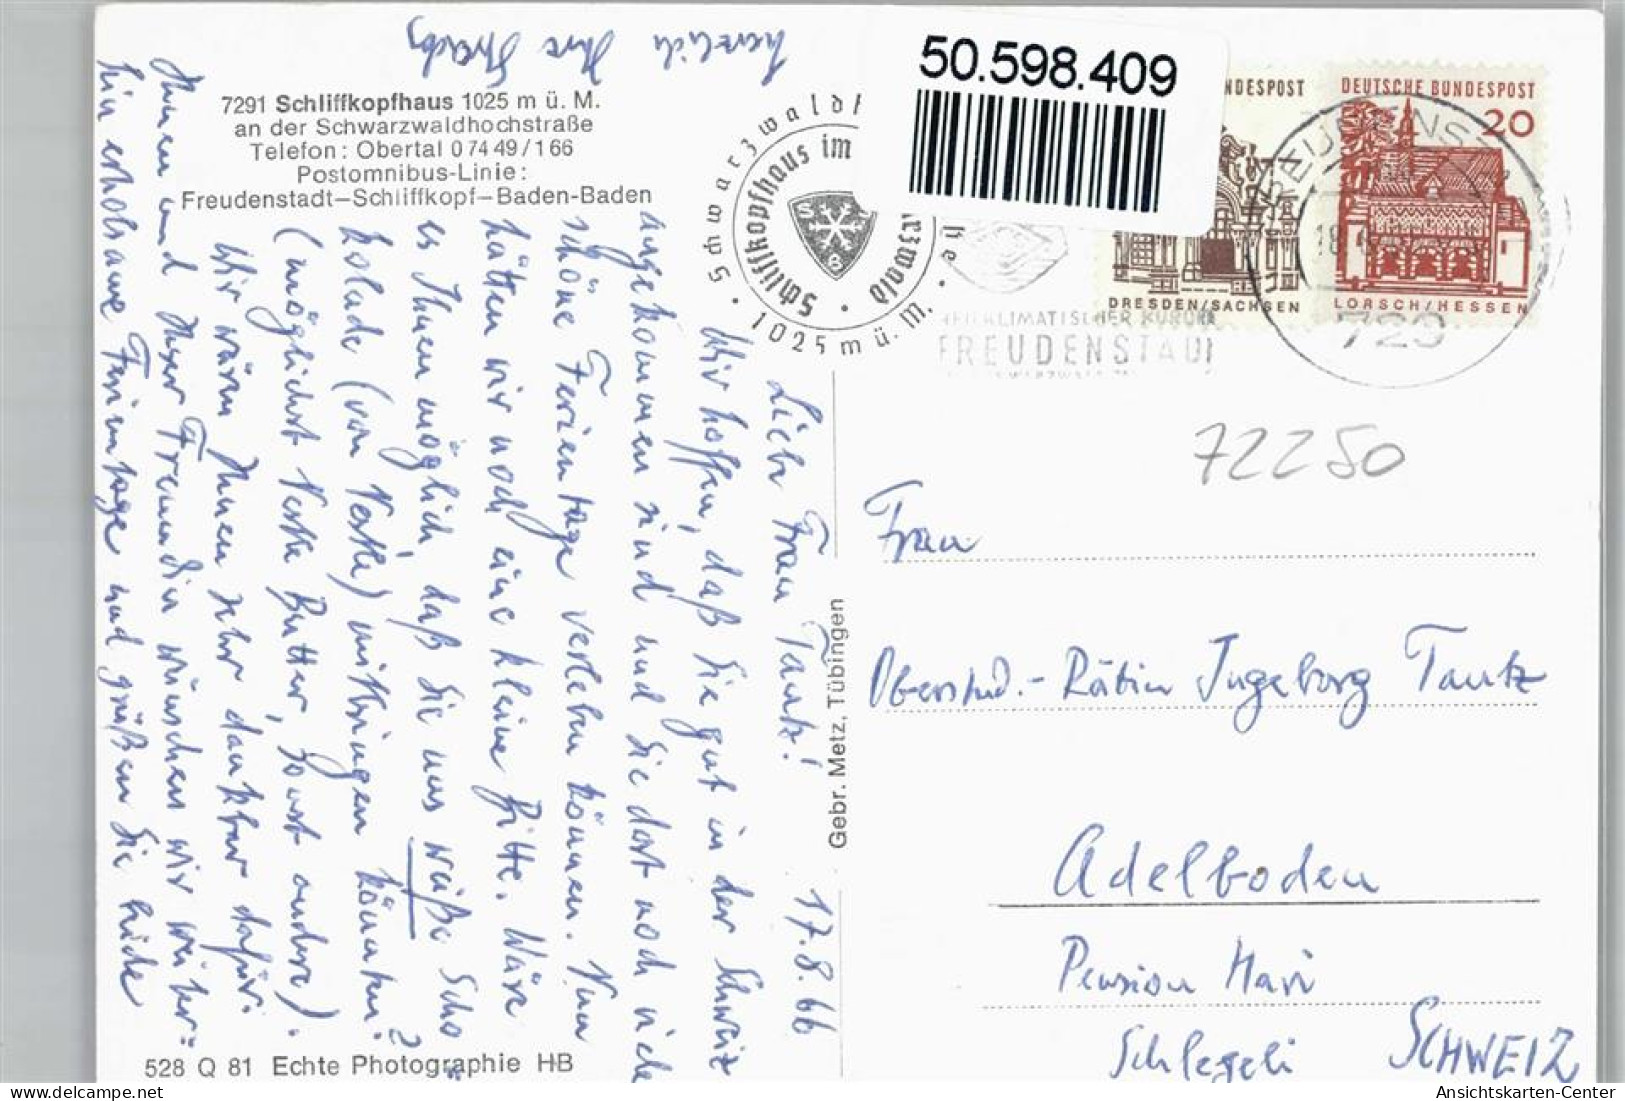 7291 Schliffkopfhaus 1025 m ü. M.
an der Schwarzwaldhochstraße
Telefon: Obertal 07449/166
Postomnibus-Linie:
Freudenstadt–Schliffkopf–Baden-Baden
Schliffkopfhaus im
1025 m ü. M.
50.598.409
NDESPOST
DRESDEN/SACHSEN
DEUTSCHE BUNDESPOST
20
LORSCH/HESSEN
FREUDENSTADT
729
72250
17.8.66
Liebe Frau Tautz!
Wir hoffen, daß Sie gut in der Schweiz
angekommen sind und Sie dort noch
schöne Ferientage verleben können. Nun
hätten wir noch eine kleine Bitte. Wäre
es Ihnen möglich, daß Sie uns weiße Scho
kolade (von Nestlé) mitbringen könnten?
(möglichst Nestlé Butter, sonst andere).
Wir wären Ihnen sehr dankbar dafür.
Ihnen und Ihrer Freundin wünschen wir weiter=
hin erholsame Ferientage und grüßen Sie beide
herzlich Ihre
Gebr. Metz, Tübingen
Frau
Oberstud.-Rätin Ingeborg Tautz
Adelboden
Pension Hari
Schlegeli
SCHWEIZ
528 Q 81 Echte Photographie HB
Ansichtskarten-Center